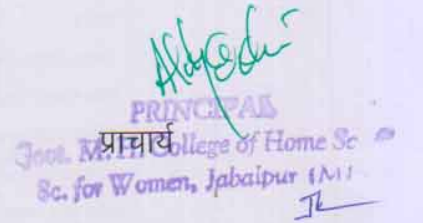 PRINCIPAL
प्राचार्य
Govt. M. H. College of Home Sc
Sc. for Women, Jabalpur (M)